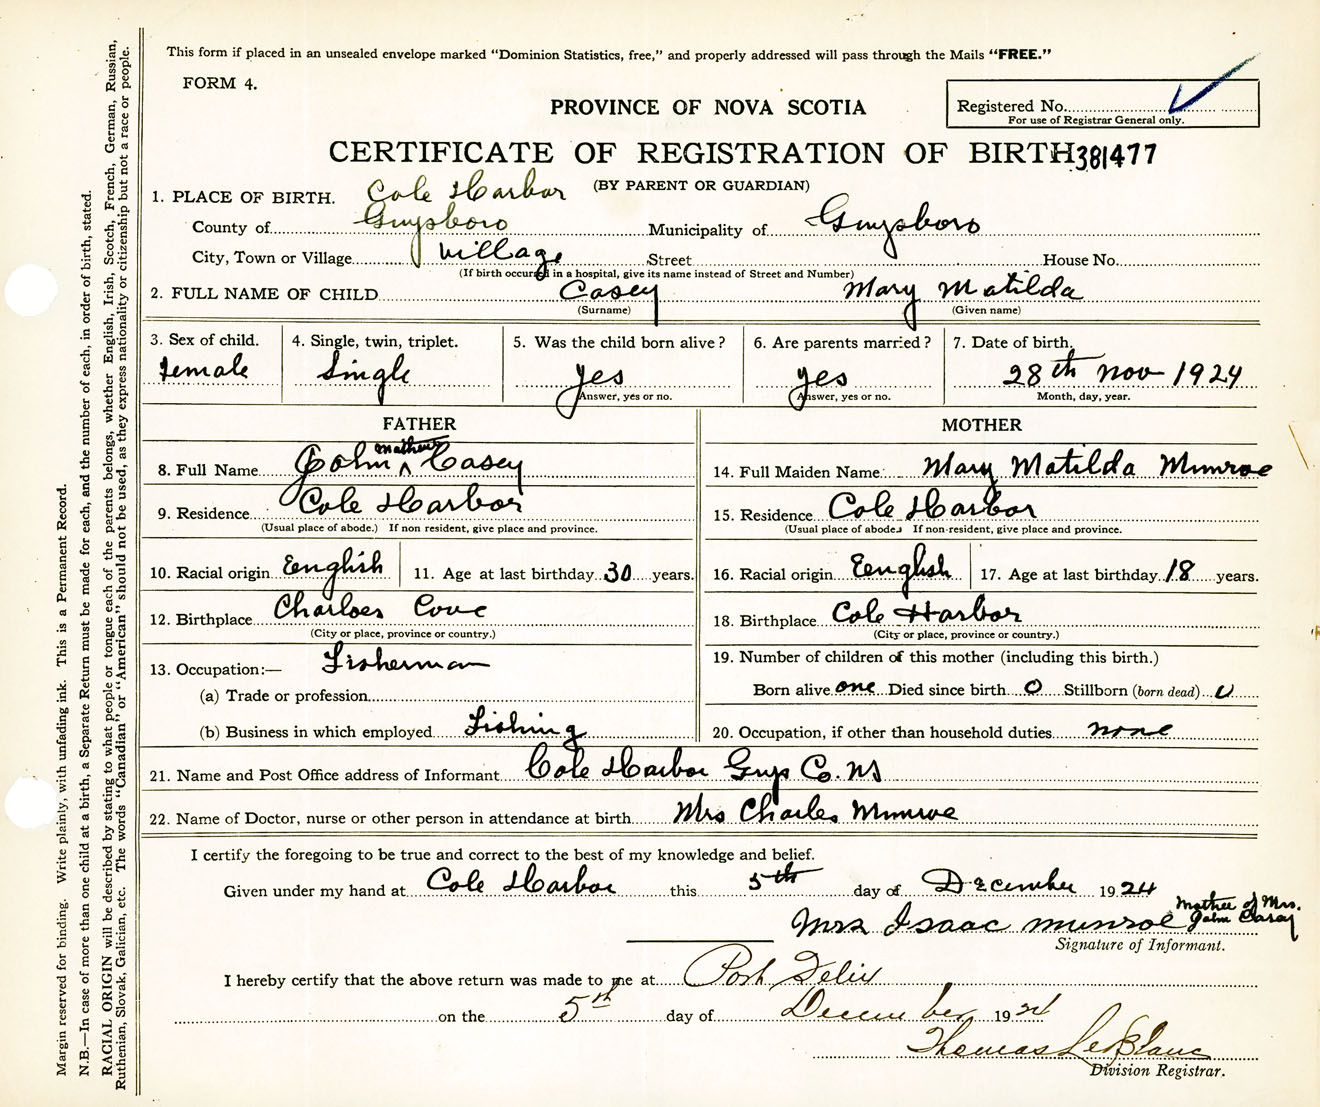 This form if placed in an unsealed envelope marked "Dominion Statistics, free," and properly addressed will pass through the Mails "FREE."
FORM 4.
PROVINCE OF NOVA SCOTIA
Registered No.
For use of Registrar General only.
CERTIFICATE OF REGISTRATION OF BIRTH 381477
(BY PARENT OR GUARDIAN)
1. PLACE OF BIRTH. Cole Harbor
County of Guysboro Municipality of Guysboro
City, Town or Village village Street House No.
(If birth occured in a hospital, give its name instead of Street and Number)
2. FULL NAME OF CHILD Casey Mary Matilda
(Surname) (Given name)
3. Sex of child. 4. Single, twin, triplet. 5. Was the child born alive? 6. Are parents married? 7. Date of birth.
female Single yes yes 28th Nov 1924
Answer, yes or no. Answer, yes or no. Month, day, year.
FATHER
8. Full Name John Mathew Casey
9. Residence Cole Harbor
(Usual place of abode.) If non resident, give place and province.
10. Racial origin English 11. Age at last birthday 30 years.
12. Birthplace Charloes Cove
(City or place, province or country.)
13. Occupation:— Fisherman
(a) Trade or profession
(b) Business in which employed Fishing
MOTHER
14. Full Maiden Name Mary Matilda Munroe
15. Residence Cole Harbor
(Usual place of abode. If non-resident, give place and province.
16. Racial origin English 17. Age at last birthday 18 years.
18. Birthplace Cole Harbor
(City or place, province or country.)
19. Number of children of this mother (including this birth.)
Born alive one Died since birth 0 Stillborn (born dead) 0
20. Occupation, if other than household duties none
21. Name and Post Office address of Informant Cole Harbor Guys Co. NS
22. Name of Doctor, nurse or other person in attendance at birth Mrs Charles Munroe
I certify the foregoing to be true and correct to the best of my knowledge and belief.
Given under my hand at Cole Harbor this 5th day of December 1924
Mrs Isaac Munroe Mother of Mrs. John Casey
Signature of Informant.
I hereby certify that the above return was made to me at Port Felix
on the 5th day of December 1924
Thomas LeBlanc
Division Registrar.
Margin reserved for binding. Write plainly, with unfading ink. This is a Permanent Record.
N.B.—In case of more than one child at a birth, a Separate Return must be made for each, and the number of each, in order of birth, stated.
RACIAL ORIGIN will be described by stating to what people or tongue each of the parents belongs, whether English, Irish, Scotch, French, German, Russian,
Ruthenian, Slovak, Galician, etc. The words "Canadian" or "American" should not be used, as they express nationality or citizenship but not a race or people.